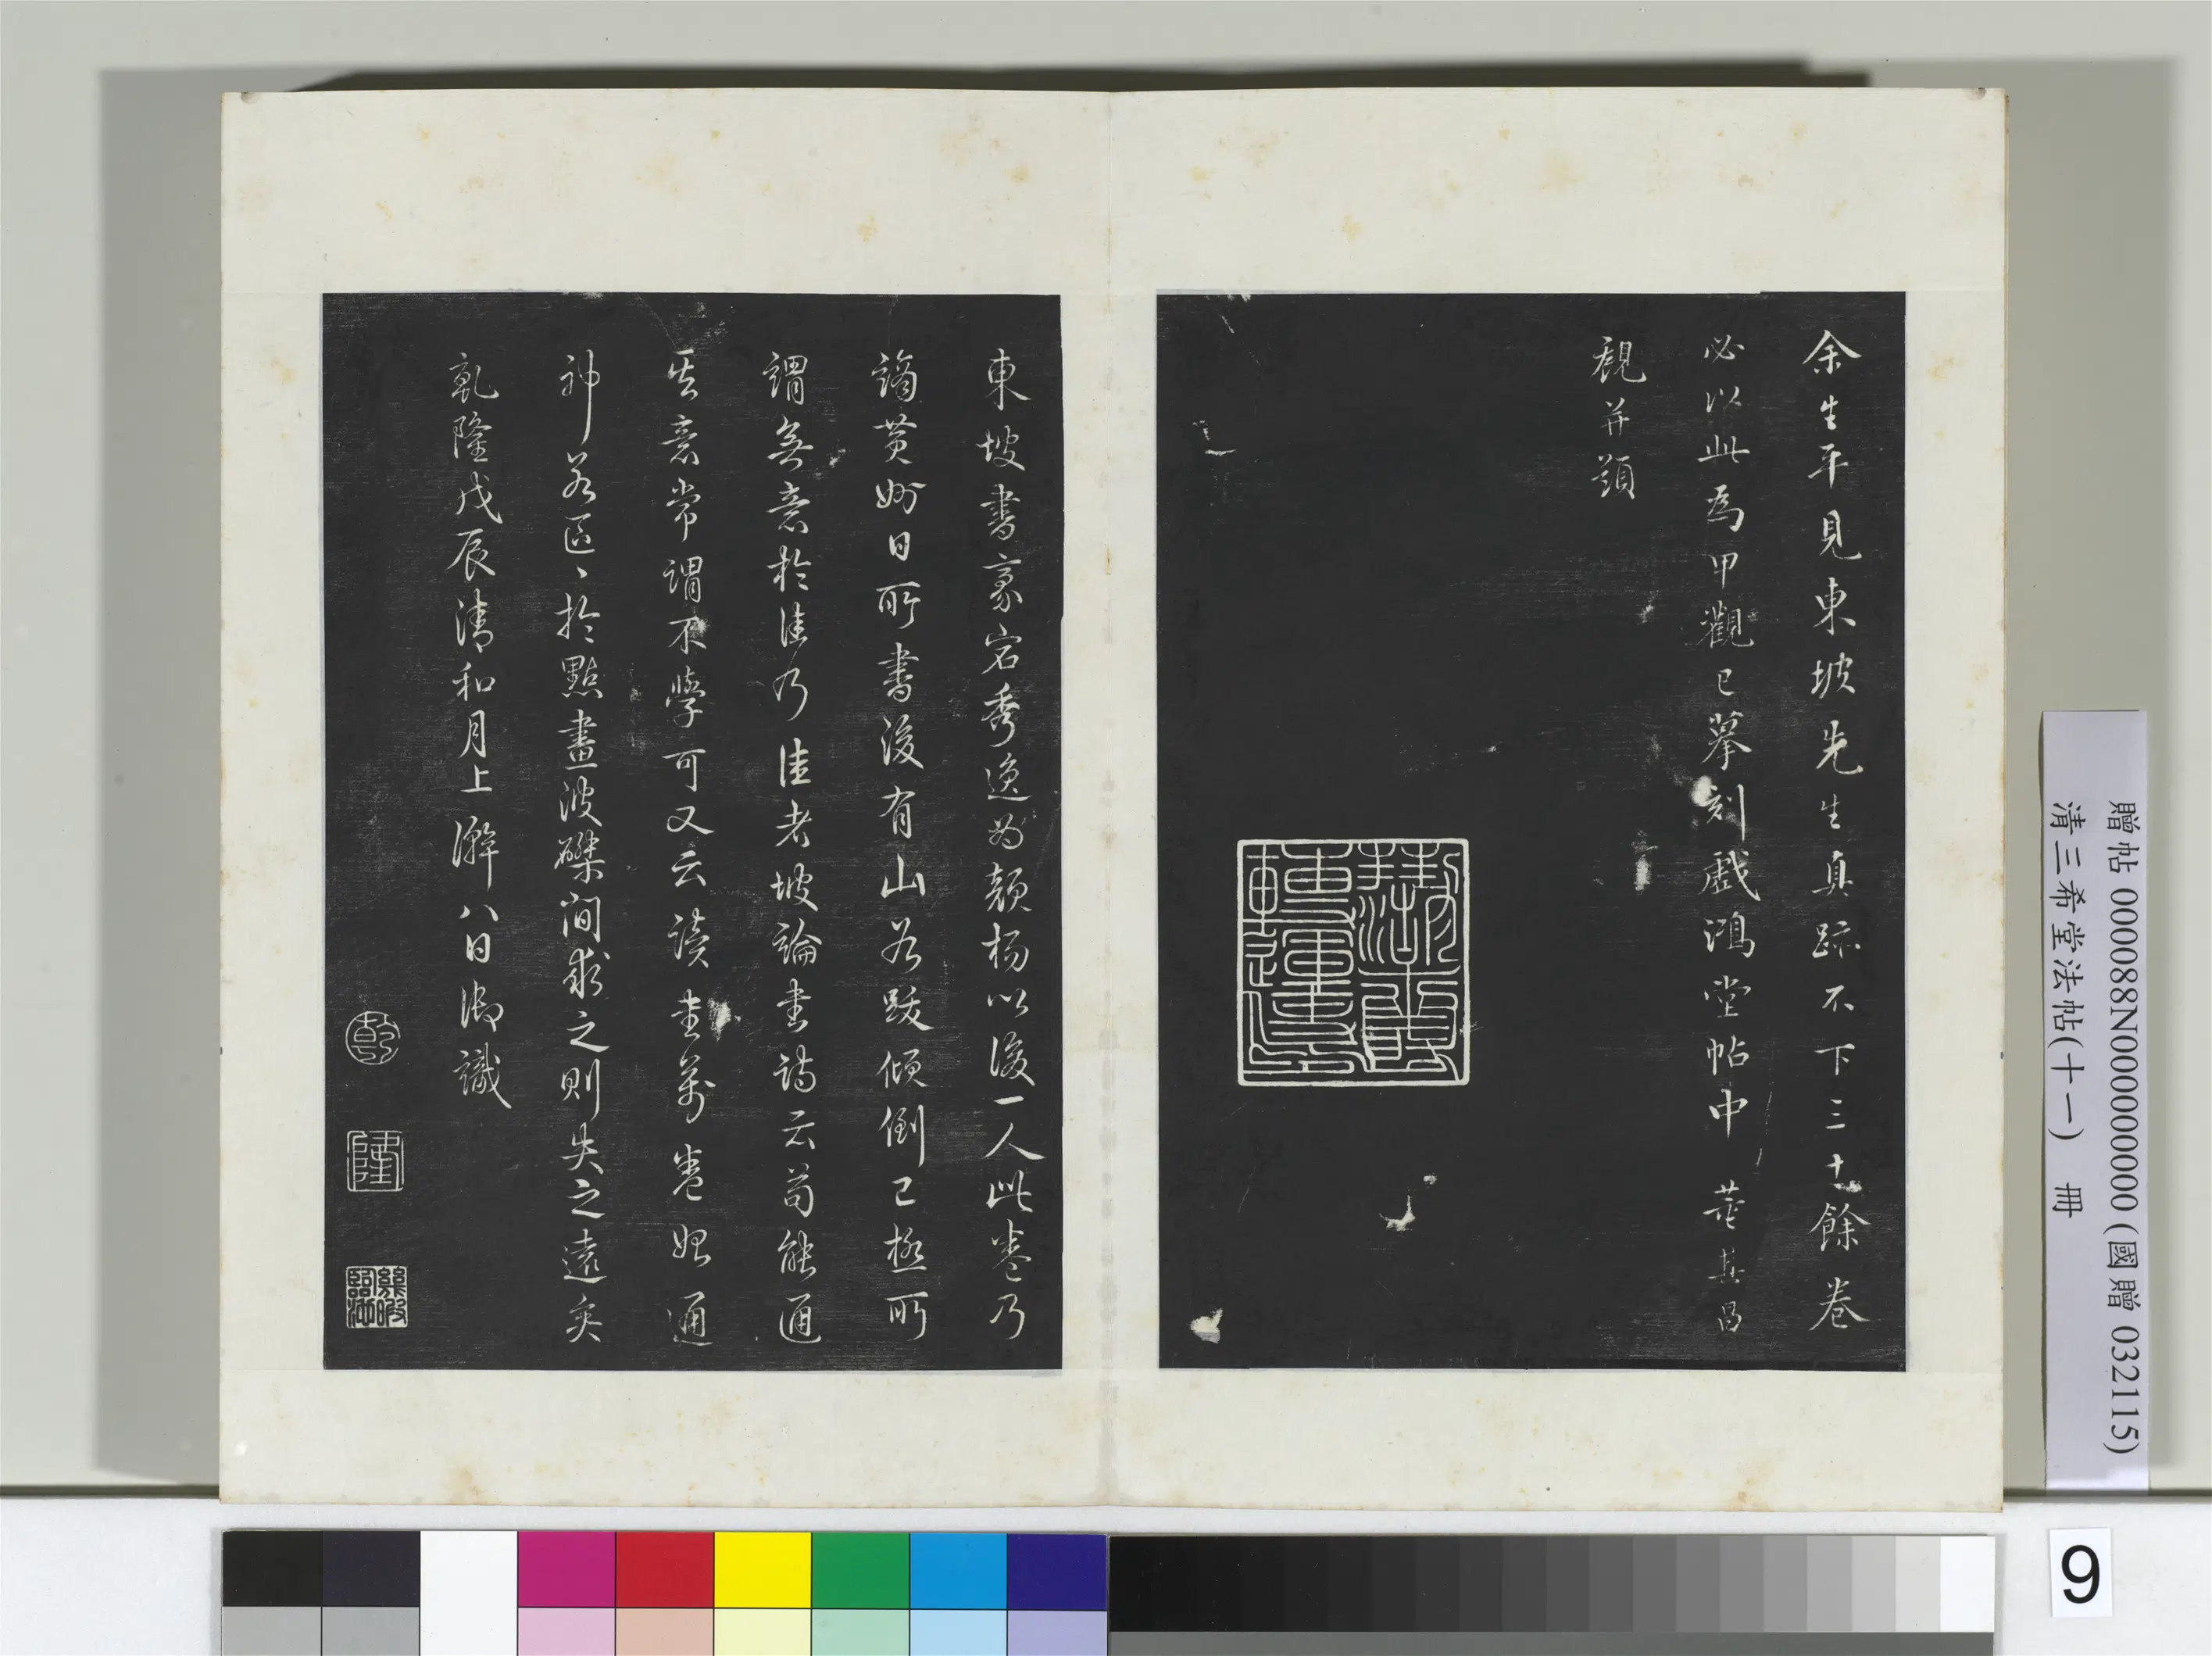 余生平見東坡先生真跡不下三十餘卷
必以此為甲觀已摹刻戲鴻堂帖中 董其昌
觀并題
東坡書豪宕秀逸為顏楊以後一人此卷乃
謫黃州日所書後有山谷跋傾倒已極所
謂無意於佳乃佳者坡論書詩云苟能通
其意常謂不學可又云讀書萬卷始通
神若區〻於點畫波磔間求之則失之遠矣
乾隆戊辰清和月上澣八日御識
乾
隆
贈帖 000088N000000000 (國贈 032115)
清三希堂法帖(十一) 冊
9